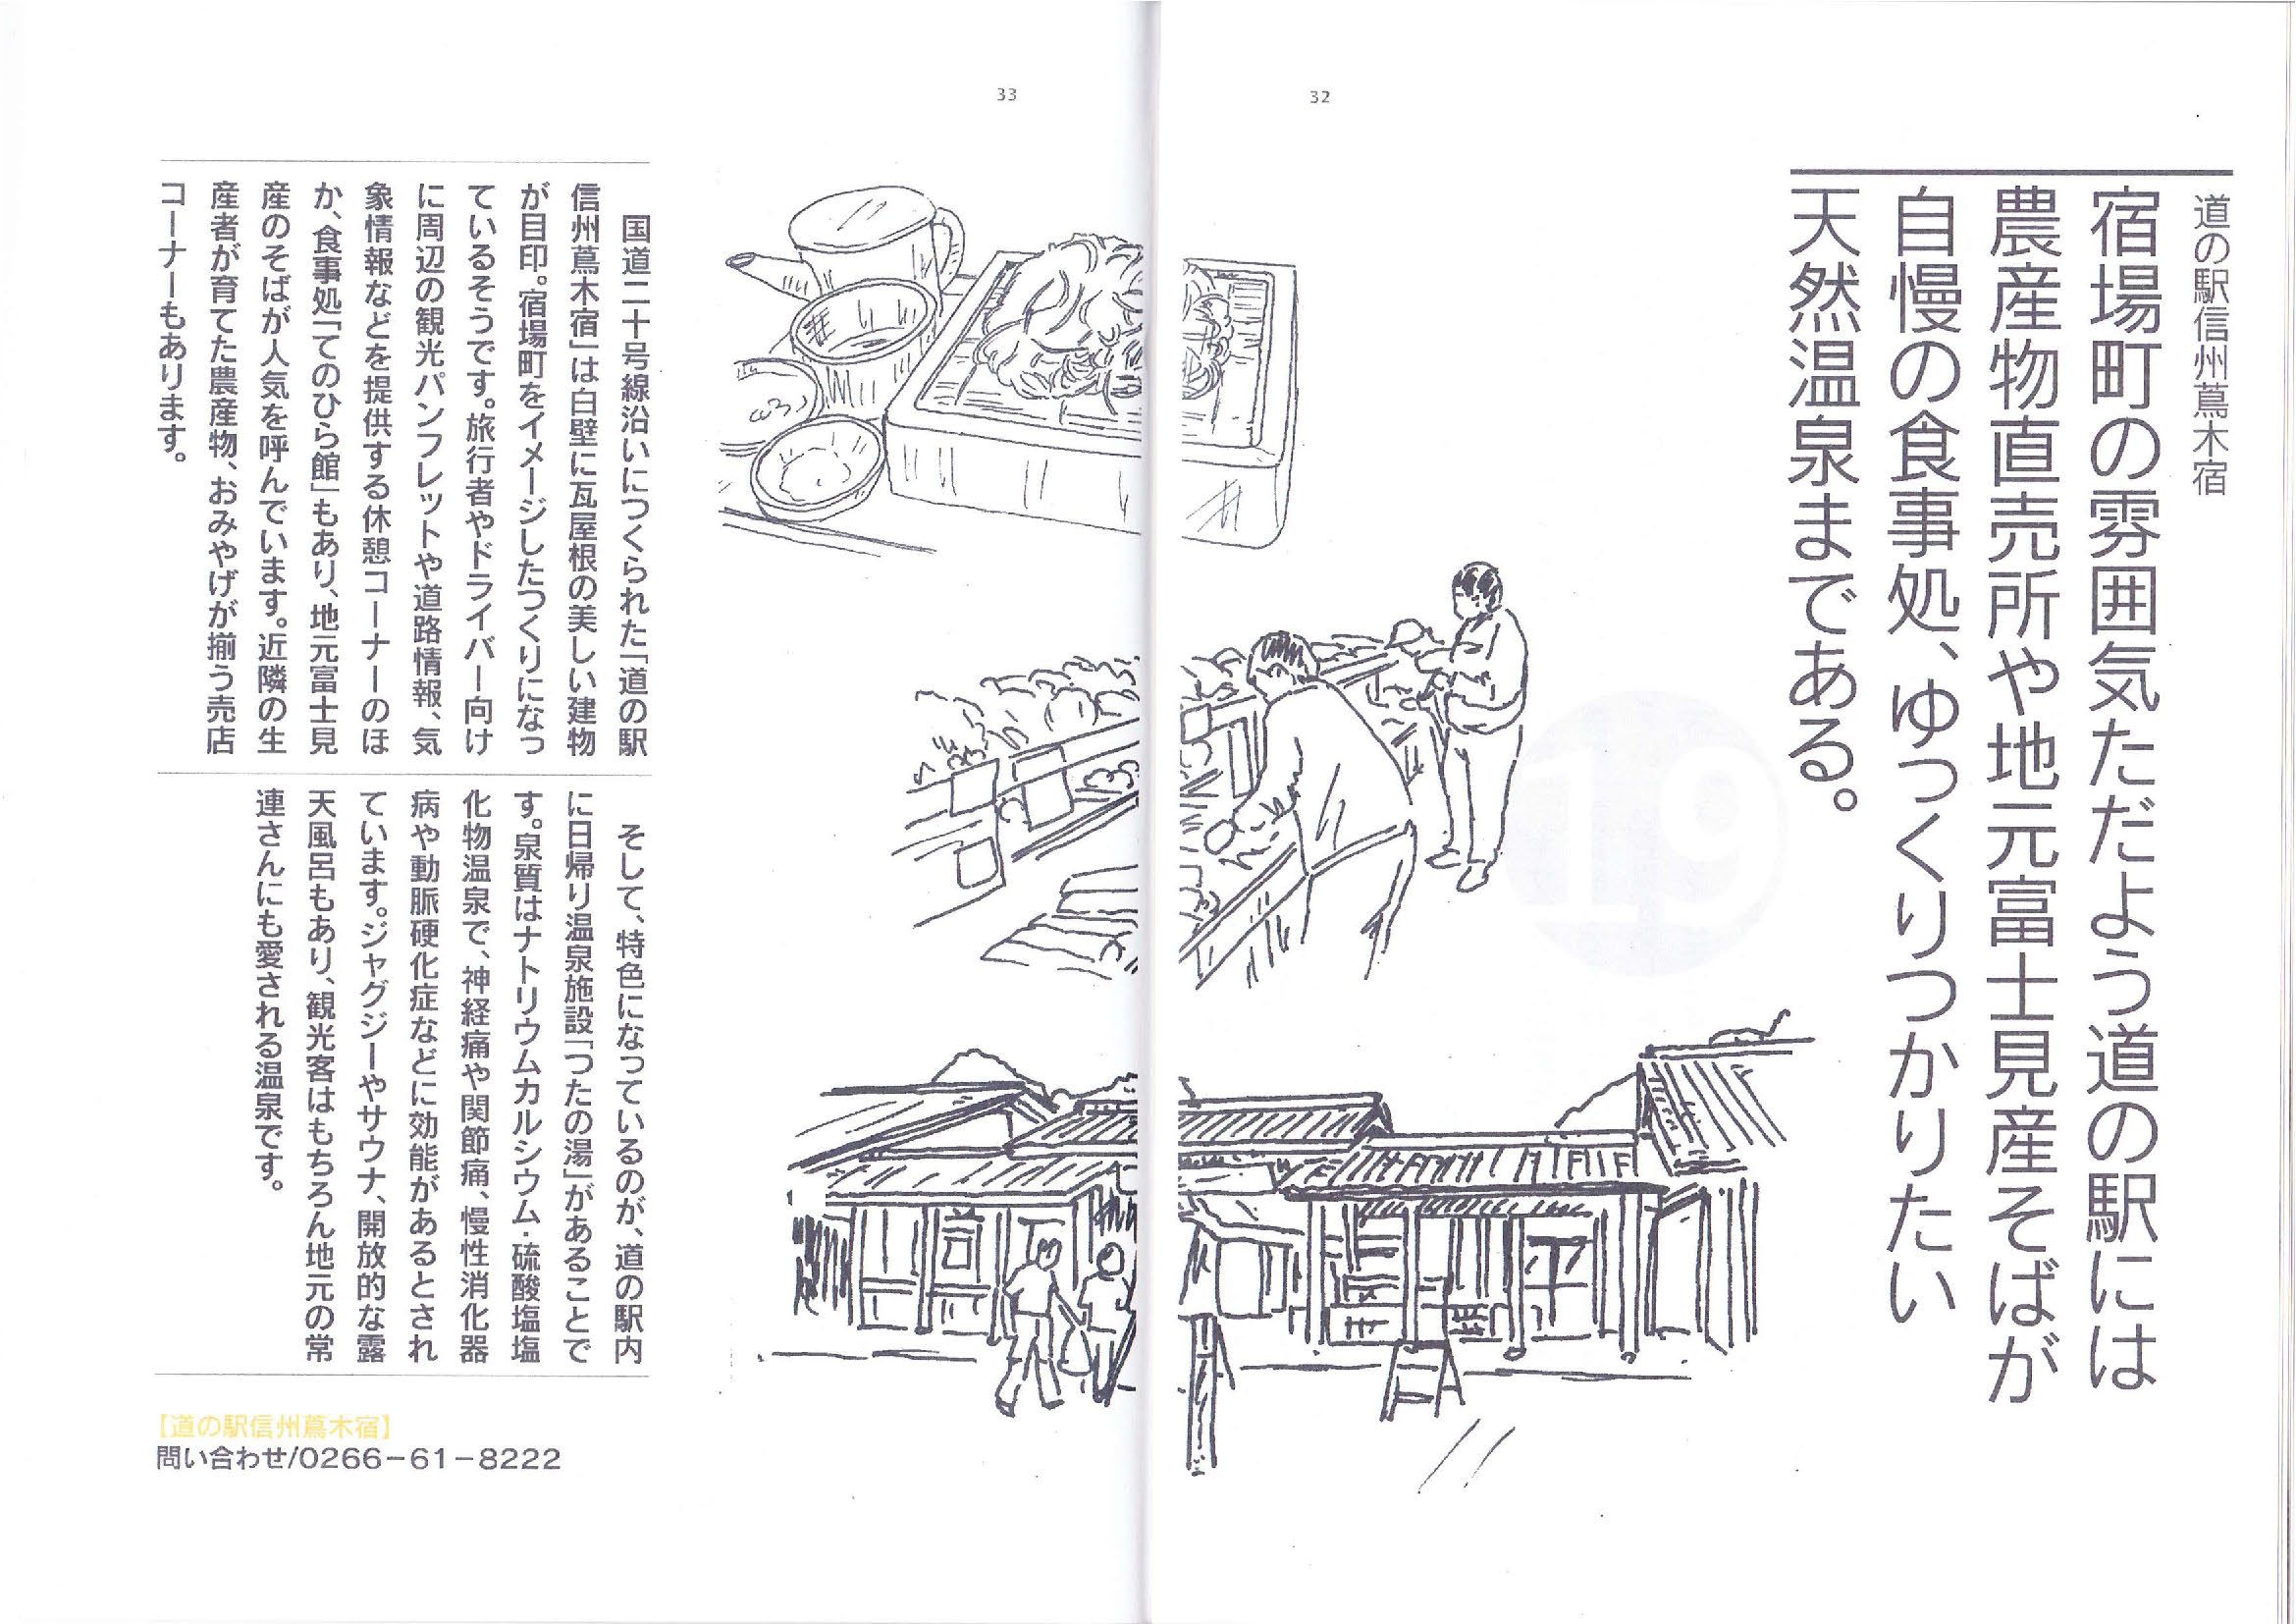 32
道の駅信州蔦木宿
宿場町の雰囲気ただよう道の駅には
農産物直売所や地元富士見産そばが
自慢の食事処、ゆっくりつかりたい
天然温泉まである。
33
国道二十号線沿いにつくられた「道の駅
信州蔦木宿」は白壁に瓦屋根の美しい建物
が目印。宿場町をイメージしたつくりになっ
ているそうです。旅行者やドライバー向け
に周辺の観光パンフレットや道路情報、気
象情報などを提供する休憩コーナーのほ
か、食事処「てのひら館」もあり、地元富士見
産のそばが人気を呼んでいます。近隣の生
産者が育てた農産物、おみやげが揃う売店
コーナーもあります。
そして、特色になっているのが、道の駅内
に日帰り温泉施設「つたの湯」があることで
す。泉質はナトリウムカルシウム・硫酸塩塩
化物温泉で、神経痛や関節痛、慢性消化器
病や動脈硬化症などに効能があるとされ
ています。ジャグジーやサウナ、開放的な露
天風呂もあり、観光客はもちろん地元の常
連さんにも愛される温泉です。
【道の駅信州蔦木宿】
問い合わせ/0266-61-8222